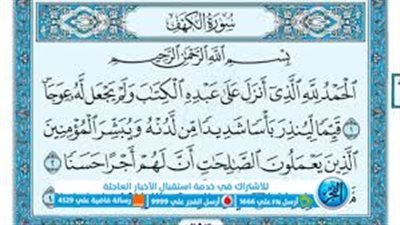 سُورَةُ الكَهْفِ
بِسْمِ اللَّهِ الرَّحْمَٰنِ الرَّحِيمِ
الْحَمْدُ لِلَّهِ الَّذِي أَنزَلَ عَلَىٰ عَبْدِهِ الْكِتَابَ وَلَمْ يَجْعَل لَّهُ عِوَجًا
١ قَيِّمًا لِّيُنذِرَ بَأْسًا شَدِيدًا مِّن لَّدُنْهُ وَيُبَشِّرَ الْمُؤْمِنِينَ
الَّذِينَ يَعْمَلُونَ الصَّالِحَاتِ أَنَّ لَهُمْ أَجْرًا حَسَنًا ٢
للأشتراك في خدمة استقبال الأخبار العاجلة
أرسل FN علي 1666 أرسل الفجر علي 9999 رسالة فاضية علي 4529
الفجر